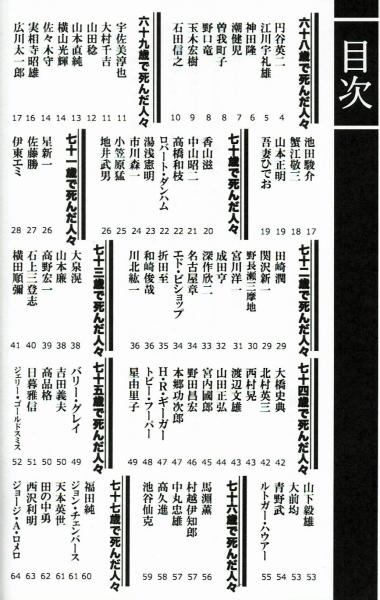 目次
六十八歳で死んだ人々
円谷英二 4
江川宇礼雄 5
神田隆 6
潮健児 7
曽我町子 8
野口竜 8
玉木宏樹 9
石田信之 10
六十九歳で死んだ人々
宇佐美淳也 11
大村千吉 11
山田稔 12
山本直純 13
横山光輝 14
佐々木守 14
実相寺昭雄 16
広川太一郎 17
池田駿介 17
蟹江敬三 18
山本正明 19
吾妻ひでお 19
七十歳で死んだ人々
香山滋 20
中山昭二 21
高橋和枝 22
ロバート・ダンハム 22
湯浅憲明 23
市川森一 24
小笠原猛 25
地井武男 26
七十一歳で死んだ人々
星新一 26
佐藤勝 27
伊東エミ 28
七十二歳で死んだ人々
田崎潤 29
関沢新一 29
野長瀬三摩地 30
宮川洋一 31
成田亨 32
深作欣二 33
名古屋章 34
エド・ビショップ 34
折田至 35
和崎俊哉 36
川北紘一 36
七十三歳で死んだ人々
大泉滉 38
山本廉 38
高野宏一 39
石上三登志 40
横田順彌 41
七十四歳で死んだ人々
大橋史典 42
北村英三 42
西村晃 43
渡辺文雄 43
山田正弘 44
宮内國郎 45
野田昌宏 46
本郷功次郎 47
H・R・ギーガー 47
トビー・フーパー 48
星由里子 49
七十五歳で死んだ人々
バリー・グレイ 49
吉田義夫 50
高品格 50
日暮雅信 51
ジェリー・ゴールドスミス 52
山下毅雄 53
大前均 53
青野武 54
ルトガー・ハウアー 55
七十六歳で死んだ人々
馬淵薫 56
村越伊知郎 57
中丸忠雄 57
高久進 58
池谷仙克 59
七十七歳で死んだ人々
福田純 60
ジョン・チェンバース 61
天本英世 61
田の中勇 62
西沢利明 63
ジョージ・A・ロメロ 64